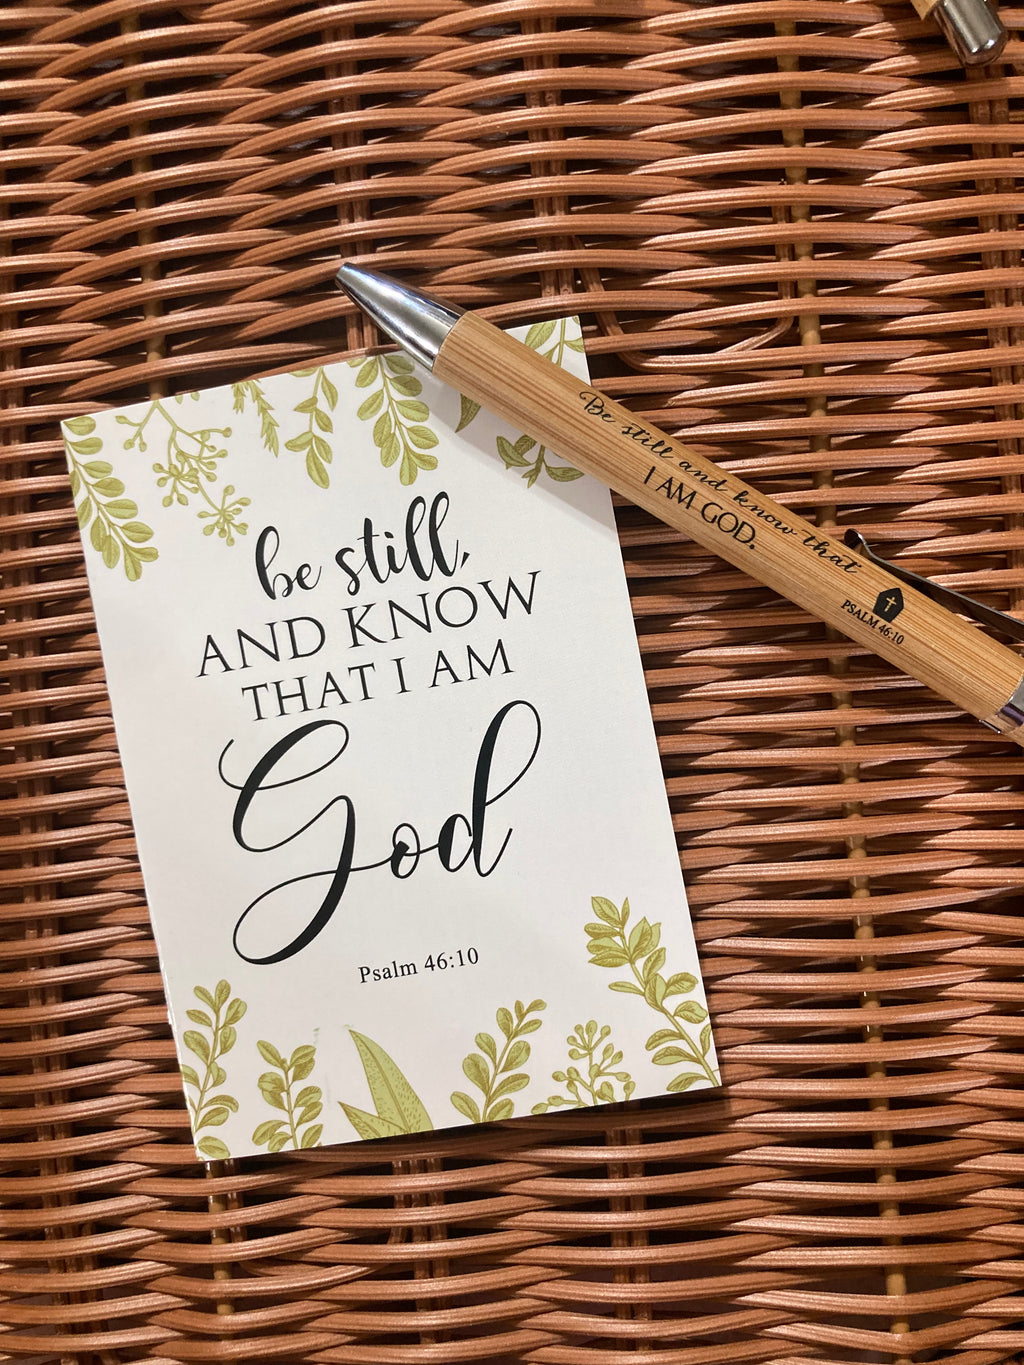 be still,
AND KNOW
THAT I AM
God
Psalm 46:10
Be still and know that
I AM GOD.
PSALM 46:10